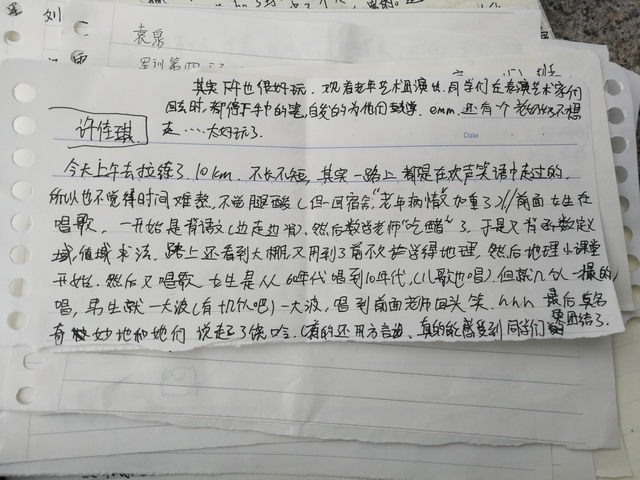 刘
袁泉
军训第四
班
其实下午也很好玩. 观看老年艺术团演出. 同学们在表演艺术家们
回去时, 都停下手中的 自发的为他们鼓掌. emm. 还有个老奶奶不想
走……太好玩了.
许佳琪
Date
今天上午去拉练了. 10km. 不长不短, 其实一路上都是在欢声笑语中走过的.
所以也不觉得时间难熬, 不觉腿酸(但一回宿舍,"老年病情"加重了)//前面女生在
唱歌, 一开始是背语文(边走边背). 然后数学老师"吃醋"了. 于是又背函数定义
域, 值域求法. 路上还看到大棚, 又用到了前不久学得地理, 然后地理小课堂
开始. 然后又唱歌 女生是从60年代唱到10年代, (儿歌也唱). 但就几个人一撮的
唱, 男生就一大波(有十几个吧)一大波, 唱到前面老师回头笑. hhh 最后莫名
奇妙地和她们说起了 (有的还用方言). 真的能感受到同学们的
更团结了.